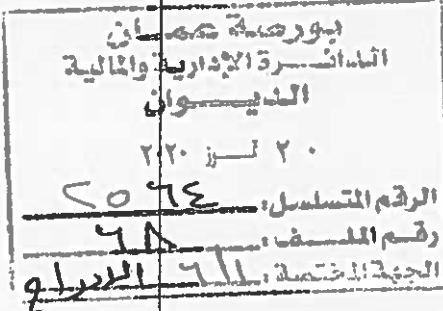 بورصة عمان
الدائرة الإدارية والمالية
الديوان
٢٠ تموز ٢٠٢٠
الرقم المتسلسل: ٢٥٦٤
رقم الملف:
الجهة المختصة: الإدراج